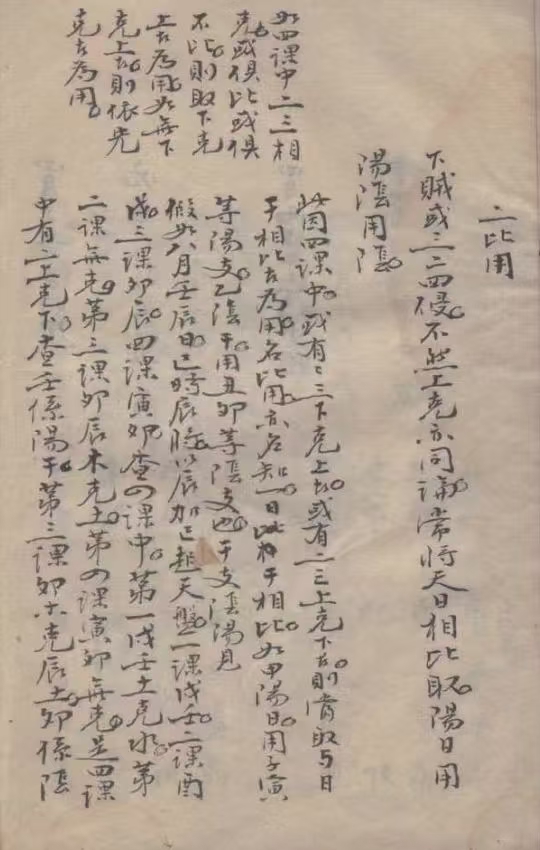 二比用
下賊或三二四侵。不然上克亦同論。常將天日相比取。陽日用
陽陰用陰。
此因四課中。或有二三下克上者。或有二三上克下者。則當取与日
干相比者為用。名比用。亦名知一。日比相干相比。如甲陽日。用子寅
等陽支。乙陰干。用丑卯等陰支也。干支陰陽見
假如八月壬辰日。巳時辰將。以辰加巳起天盤。一課戌壬。二課酉
戌。三課卯辰。四課寅卯。查四課中。第一戌壬土克水。第
二課無克。第三課卯辰木克土。第四課寅卯無克。是四課
中有二上克下。查壬係陽干。第三課卯木克辰土。卯係陰
如四課中二三相
克。或俱比或俱
不比。則取下克
上者為用。如無下
克上者。則依先
克者為用。